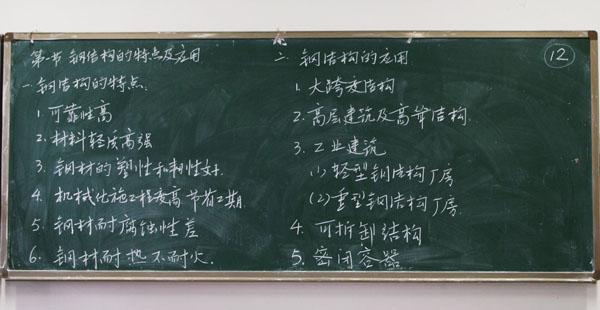 第一节 钢结构的特点及应用
一.钢结构的特点.
1.可靠性高
2.材料轻质高强
3.钢材的塑性和韧性好.
4.机械化施工程度高 节省工期.
5.钢材耐腐蚀性差
6.钢材耐热不耐火.
二.钢结构的应用
1.大跨度结构
2.高层建筑及高耸结构.
3.工业建筑
(1)轻型钢结构厂房
(2)重型钢结构厂房.
4.可拆卸结构
5.密闭容器
12